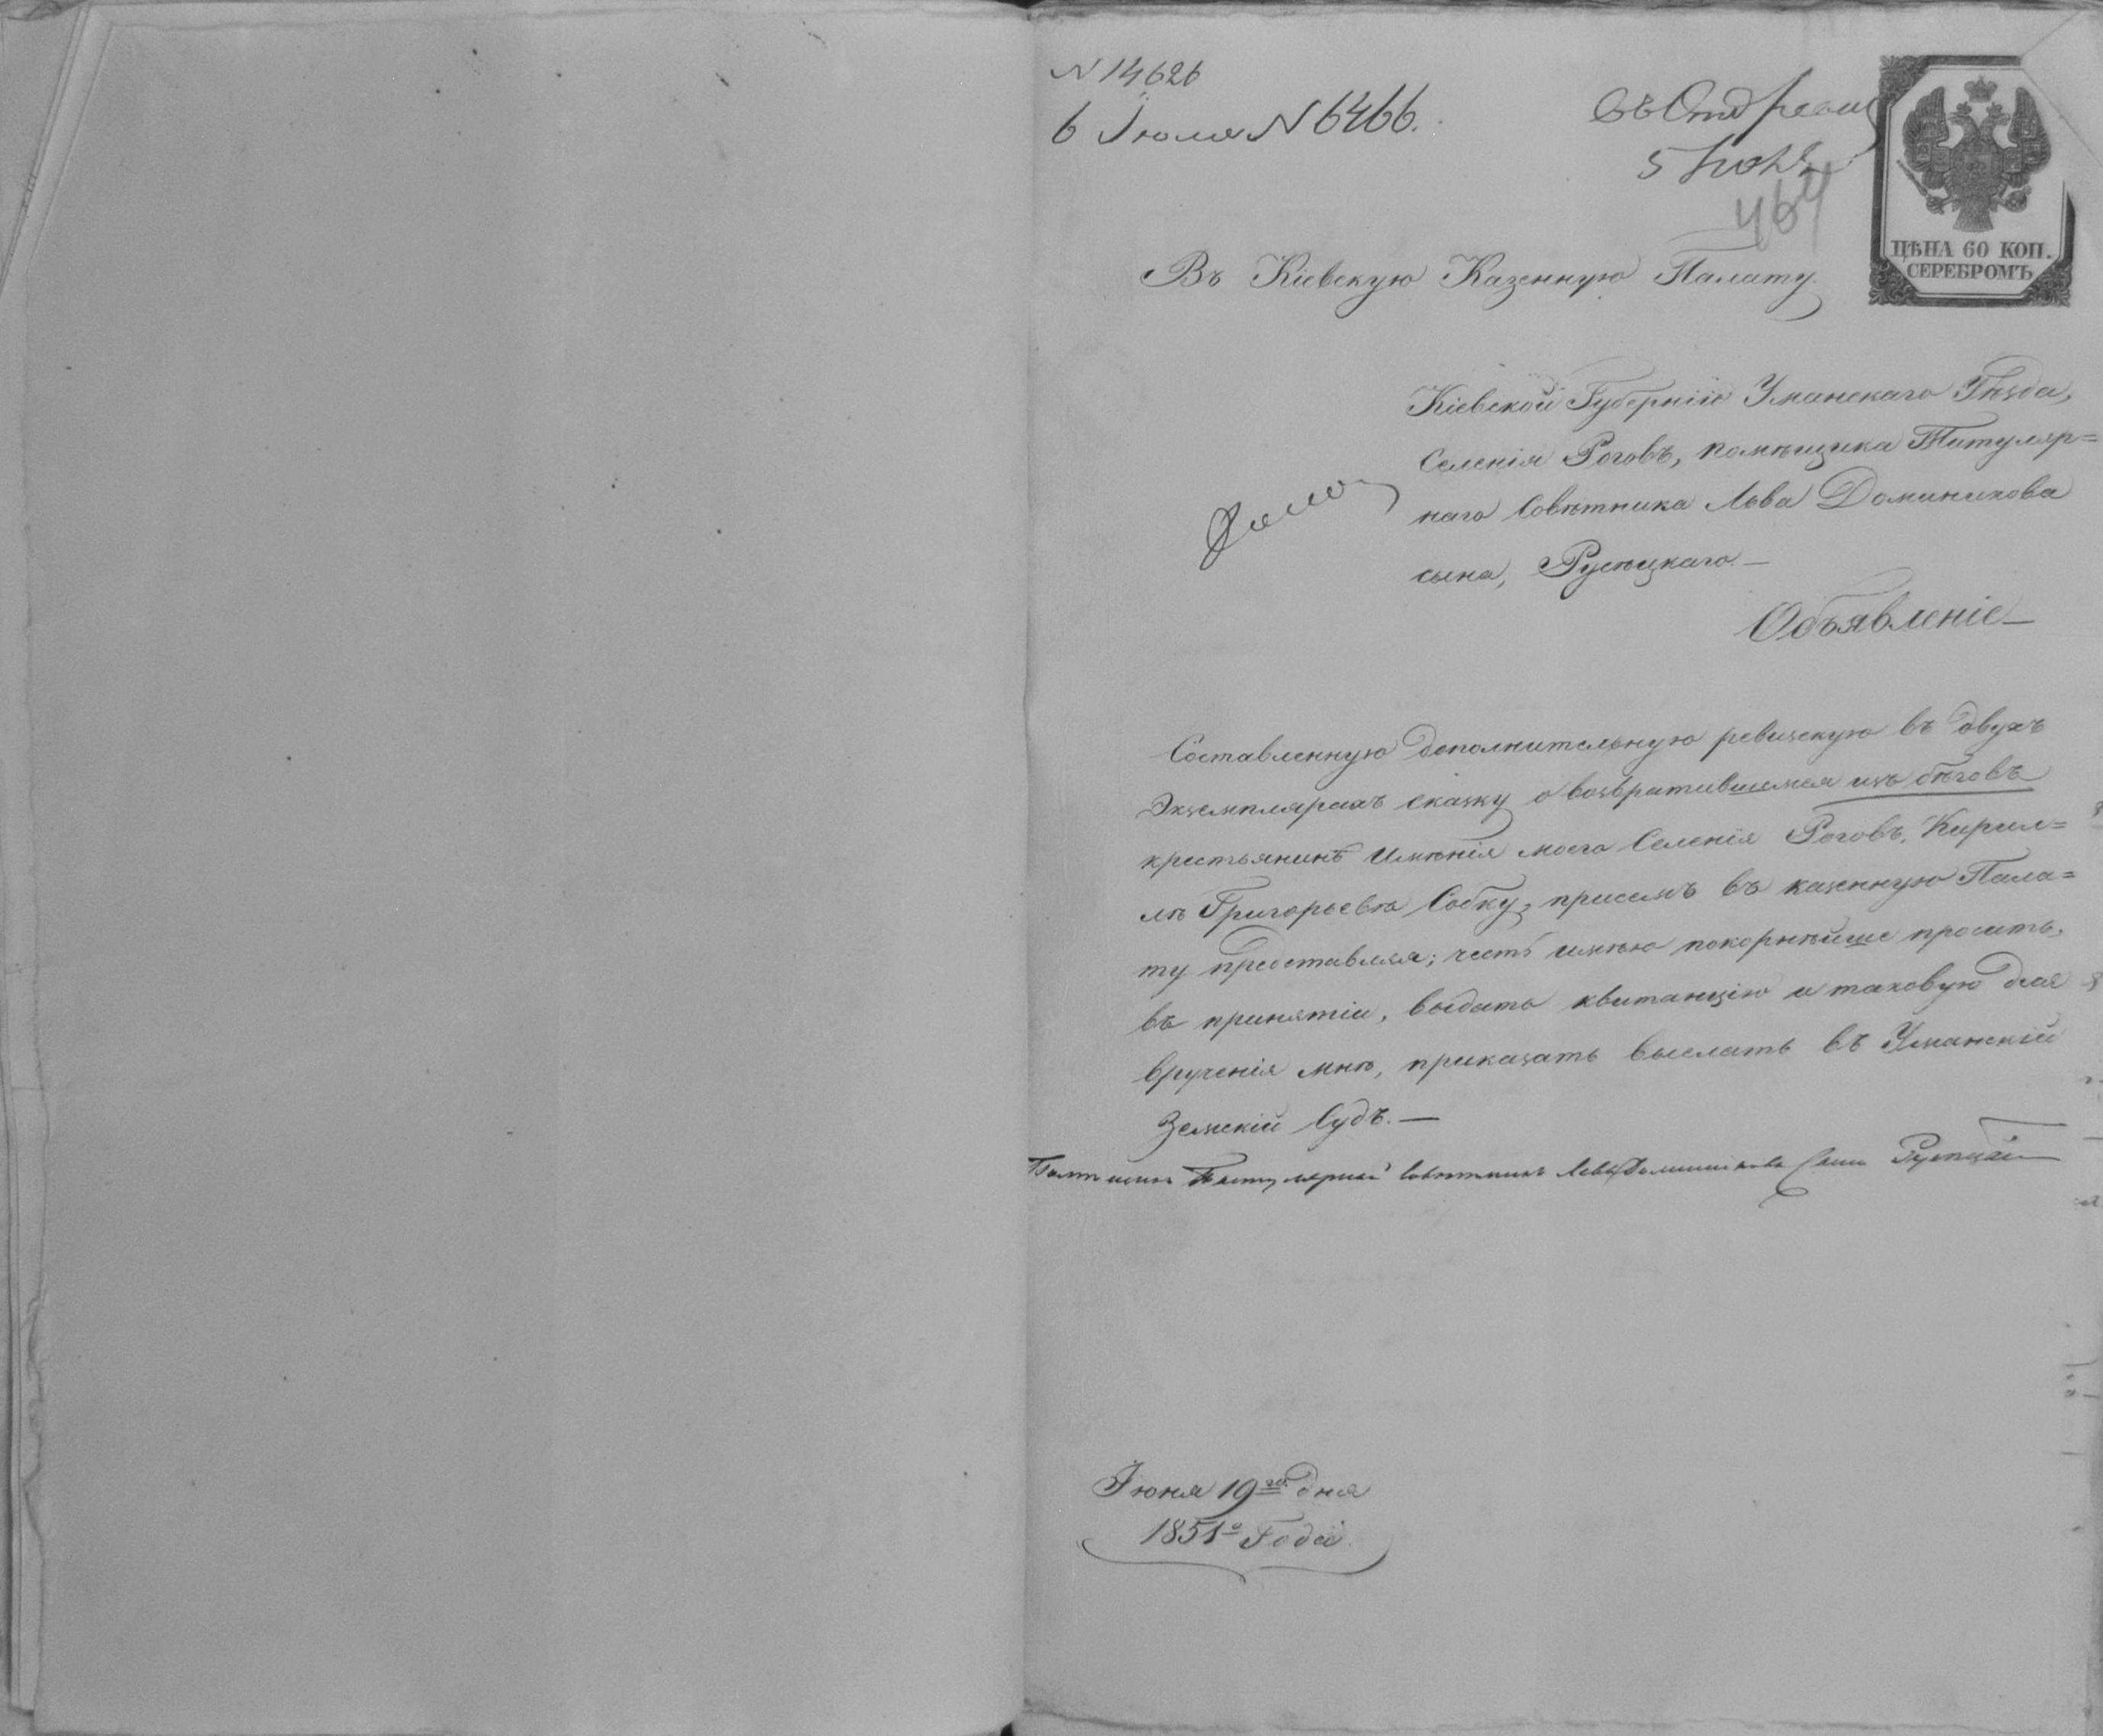 N 14626
6 Іюля N 6466.
Въ Отд
5 Іюля
464
ЦѢНА 60 КОП.
СЕРЕБРОМЪ
Въ Кіевскую Казенную Палату
Кіевской Губерніи Уманскаго Уѣзда,
Селенія Роговъ, помѣщика Титуляр=
наго Совѣтника Льва Доминикова
сына, Русѣцкаго.—
Объявленіе—
Составленную дополнительную ревизскую въ двухъ
Экземплярахъ сказку о возвратившемся изъ бѣговъ
крестьянинѣ имѣнія моего Селенія Роговъ, Кирил=
лѣ Григорьевѣ Собку, присемъ въ казенную Пала=
ту представляя; честь имѣю покорнѣйше просить,
въ принятіи, выдать квитанцію и таковую для
врученія мнѣ, приказать выслать въ Уманскій
Земскій Судъ.—
Титулярный Совѣтникъ Левъ Доминиковъ Сынъ Русѣцкій
Іюня 19го дня
1851го Года